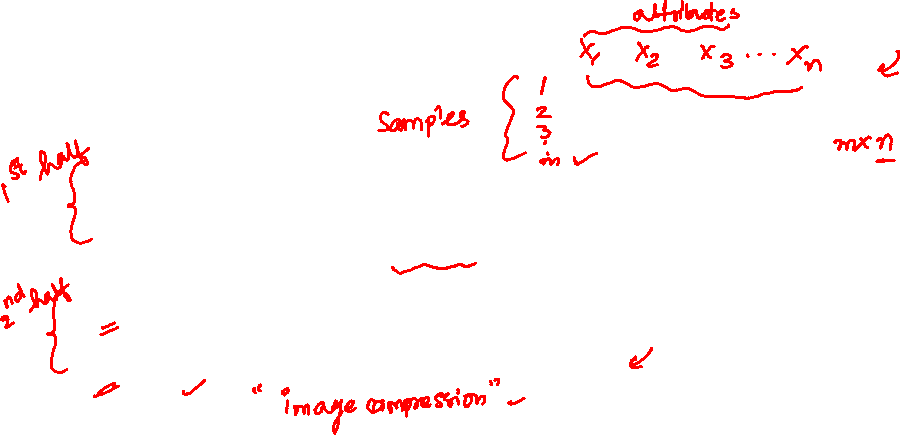 attributes
X1 X2 X3 ... Xn
Samples { 1
2
3
:
m
m x n
1st half {
2nd half {
=
"image compression"